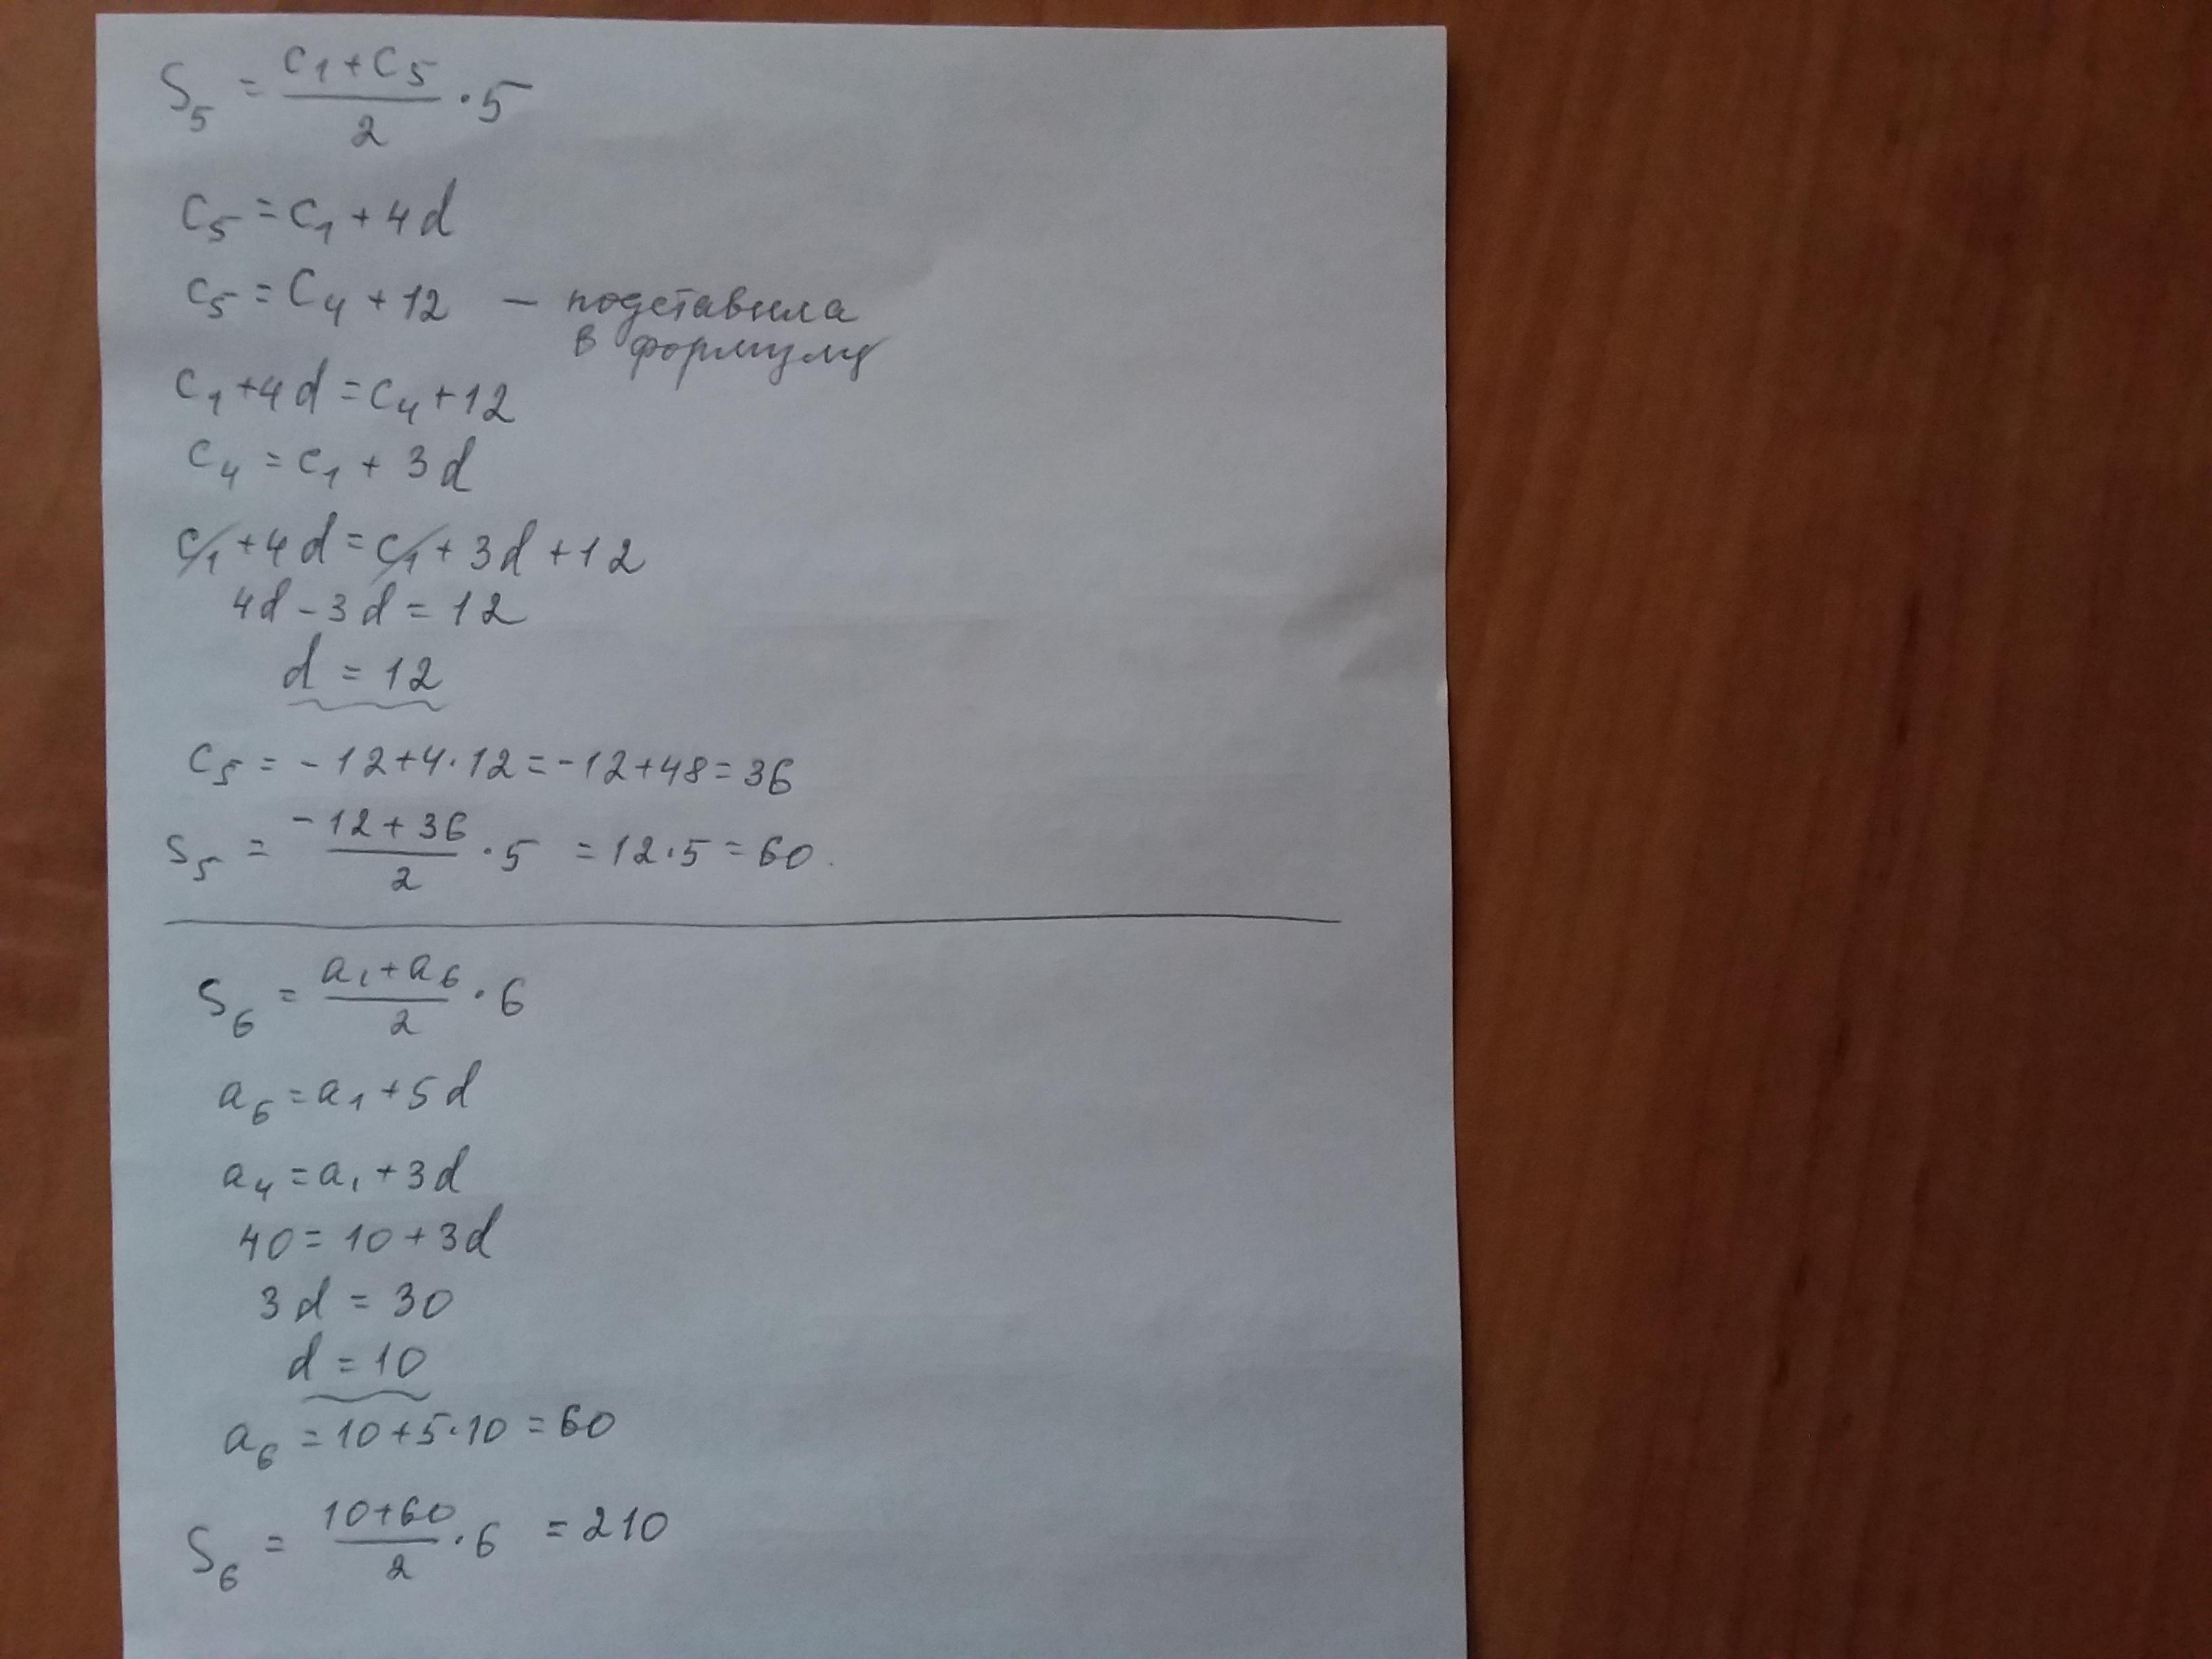 S₅ = (c₁ + c₅)/2 · 5
c₅ = c₁ + 4d
c₅ = c₄ + 12 — подставила
в формулу
c₁ + 4d = c₄ + 12
c₄ = c₁ + 3d
c₁ + 4d = c₁ + 3d + 12
4d - 3d = 12
d = 12
c₅ = -12 + 4·12 = -12 + 48 = 36
S₅ = (-12 + 36)/2 · 5 = 12·5 = 60.
S₆ = (a₁ + a₆)/2 · 6
a₆ = a₁ + 5d
a₄ = a₁ + 3d
40 = 10 + 3d
3d = 30
d = 10
a₆ = 10 + 5·10 = 60
S₆ = (10 + 60)/2 · 6 = 210